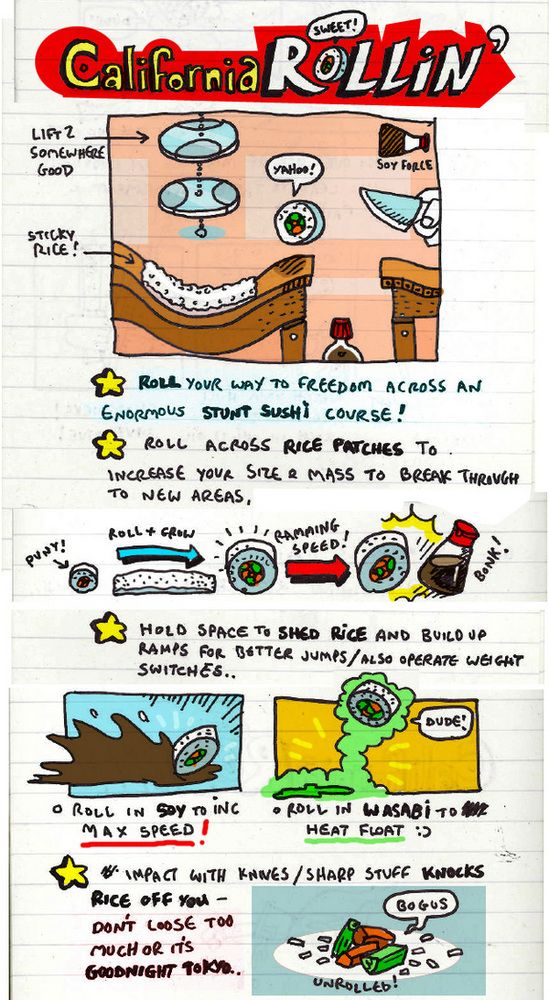 SWEET!
California ROLLiN'
LIFT 2
SOMEWHERE
GOOD
SOY FORCE
YAHOO!
STICKY
RICE!
ROLL YOUR WAY TO FREEDOM ACROSS AN
ENORMOUS STUNT SUSHi COURSE!
ROLL ACROSS RICE PATCHES TO
INCREASE YOUR SIZE & MASS TO BREAK THROUGH
TO NEW AREAS.
PUNY!
ROLL + GROW
RAMMING
SPEED!
BONK!
HOLD SPACE TO SHED RICE AND BUILD UP
RAMPS FOR BETTER JUMPS/ALSO OPERATE WEIGHT
SWITCHES..
DUDE!
ROLL IN SOY TO INC
MAX SPEED!
ROLL IN WASABi TO
HEAT FLOAT :)
IMPACT WITH KNIVES/SHARP STUFF KNOCKS
RICE OFF YOU -
DON'T LOOSE TOO
MUCH OR IT'S
GOODNIGHT TOKYO..
BOGUS
UNROLLED!